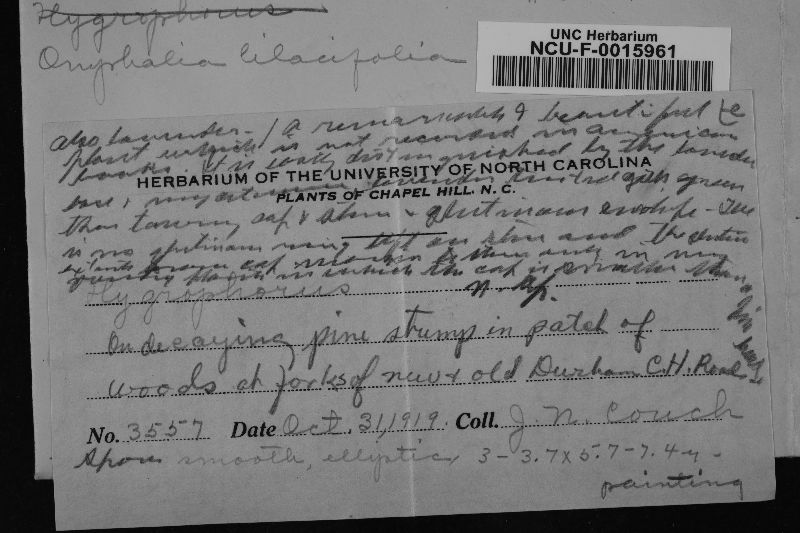 Hygrophorus
Omphalia lilacifolia
UNC Herbarium
NCU-F-0015961
also lavender - / A remarkable & beautiful
plant which is not recorded in American
books. It is easily distinguished by the lavender
HERBARIUM OF THE UNIVERSITY OF NORTH CAROLINA
base & mycelium lavender tinted gills, green
PLANTS OF CHAPEL HILL, N. C.
than tawny cap & stem & glutinous envelope - The
is no glutinous ring left on stem and the gluten
extends cap margin only in very
young plants in which the cap is smaller than a
Hygrophorus n. sp.
On decaying pine stump in patch of
woods at forks of new & old Durham C.H. Road
No. 3557 Date Oct. 31, 1919. Coll. J. N. Couch
Spores smooth, elliptic, 3 - 3.7 x 5.7 - 7.4 µ -
painting